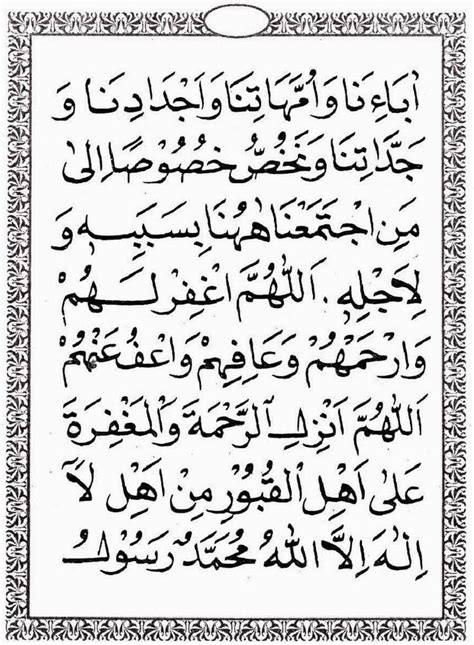 اٰبَاءِنَا وَاُمَّهَاتِنَا وَاَجْدَادِنَا وَ
جَدَّاتِنَا وَنَخُصُّ خُصُوْصًا اِلٰى
مَنِ اجْتَمَعْنَا هٰهُنَا بِسَبَبِهٖ وَ
لِاَجْلِهٖ. اَللّٰهُمَّ اغْفِرْ لَهُمْ
وَارْحَمْهُمْ وَعَافِهِمْ وَاعْفُ عَنْهُمْ
اَللّٰهُمَّ اَنْزِلِ الرَّحْمَةَ وَالْمَغْفِرَةَ
عَلٰى اَهْلِ الْقُبُوْرِ مِنْ اَهْلِ لَآ
اِلٰهَ اِلَّا اللّٰهُ مُحَمَّدٌ رَسُوْلُ